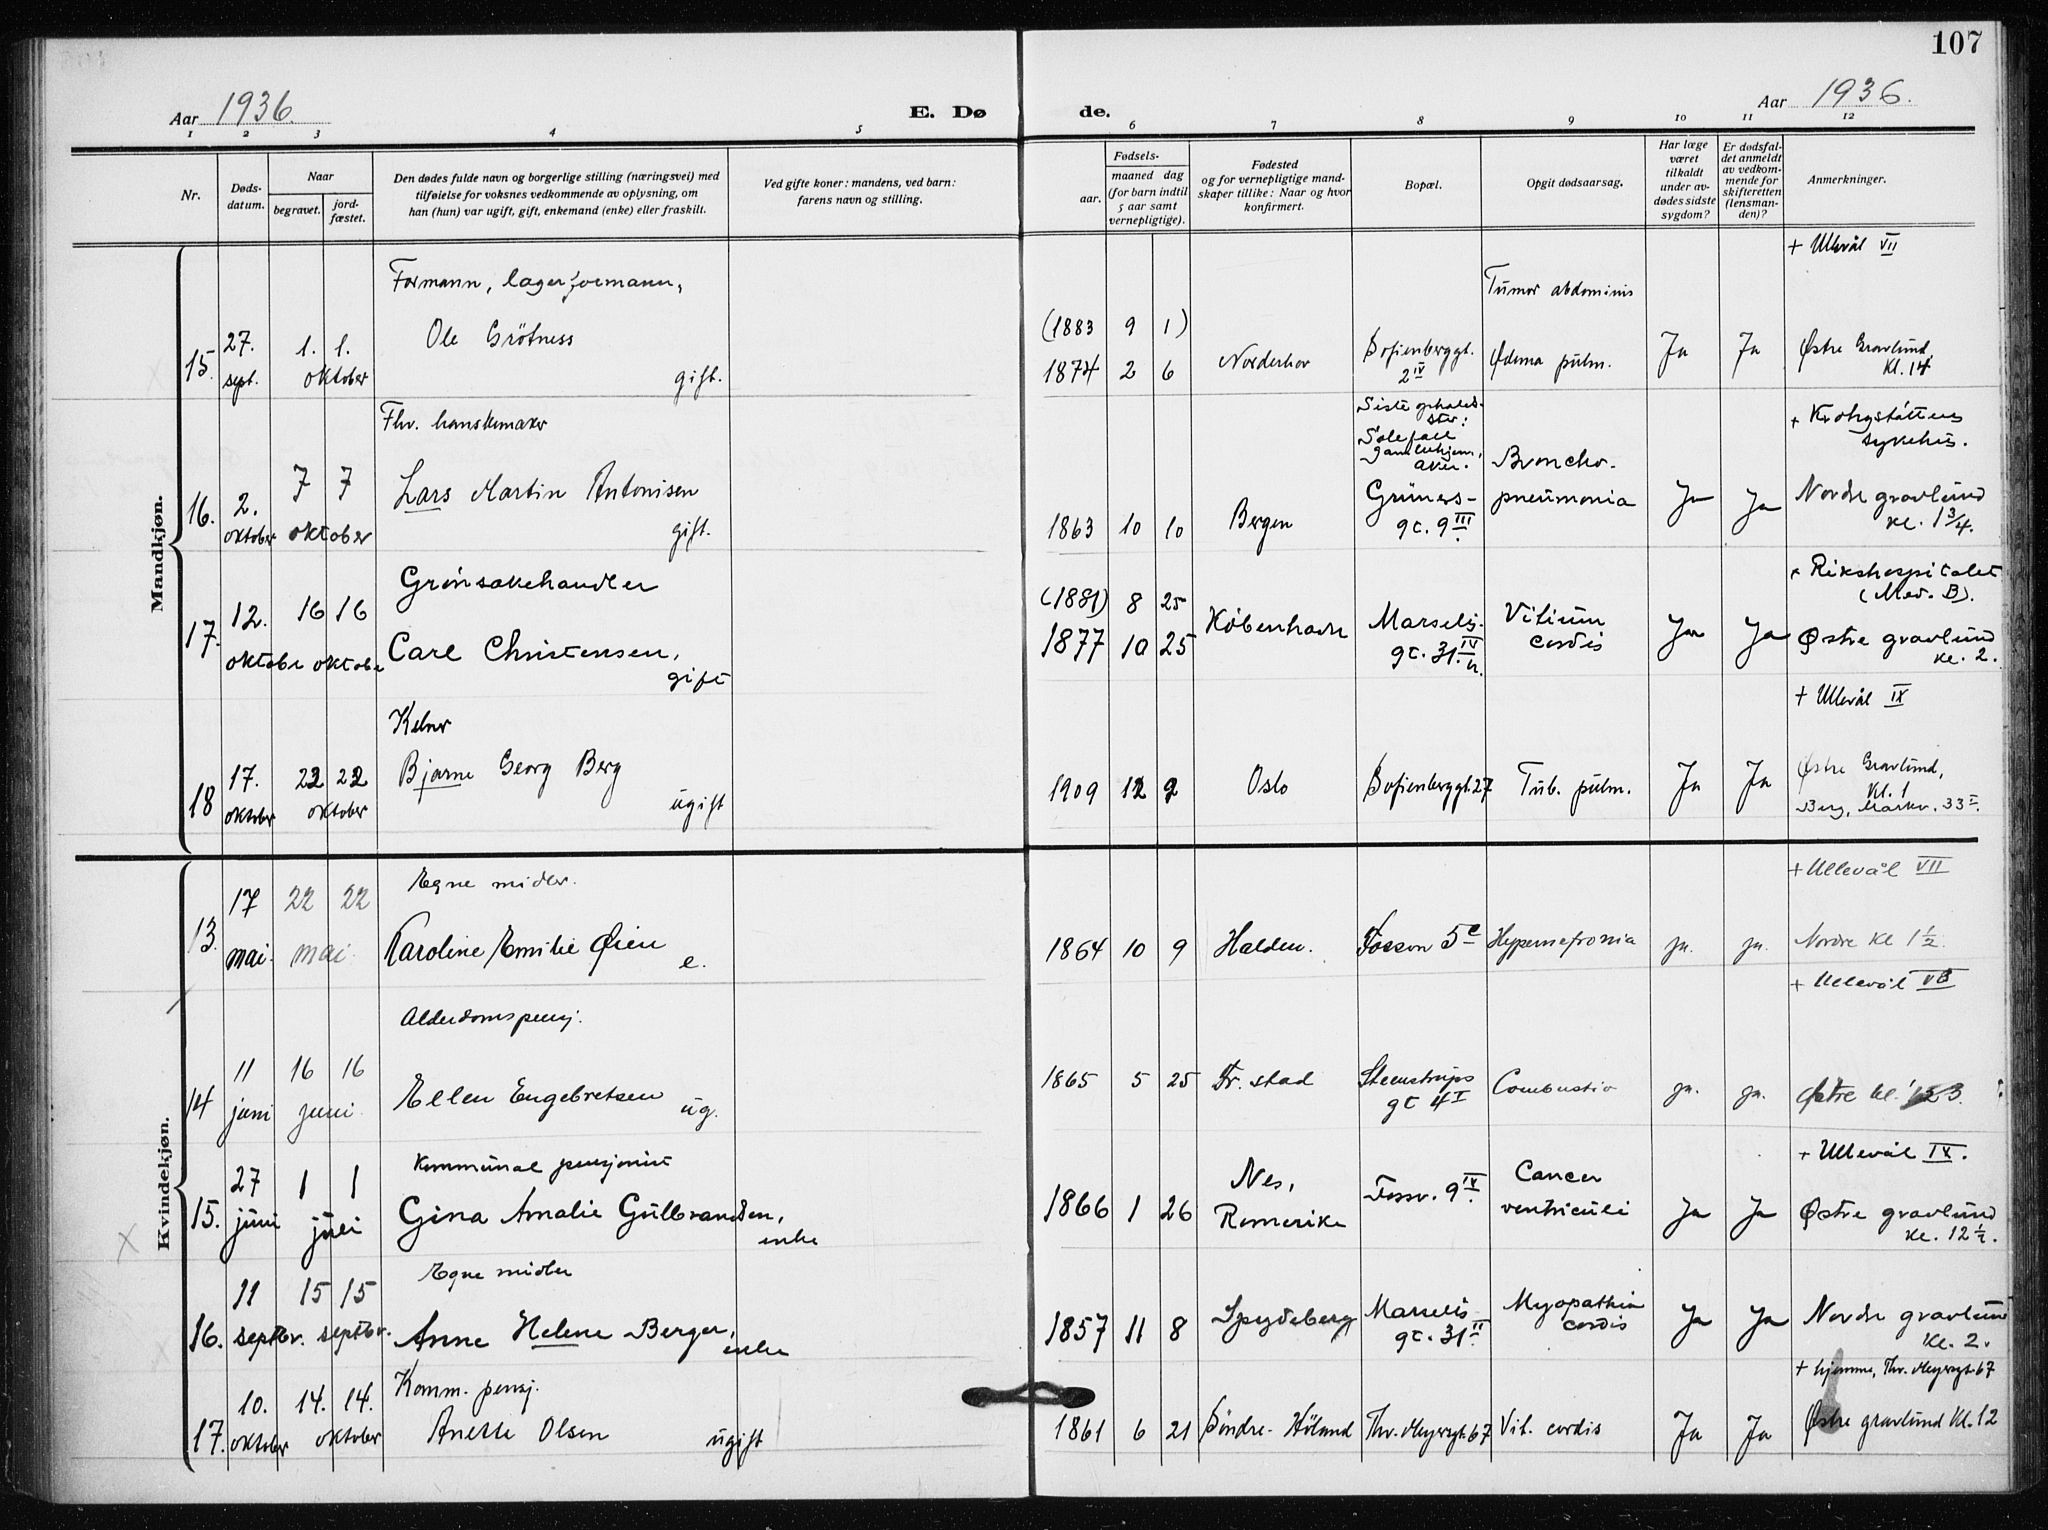 107
Aar 1936.
E. Dø
de.
Aar 1936.
1 2 3 4 5 6 7 8 9 10 11 12
Nr.
Døds-
datum.
Naar
begravet.
jord-
fæstet.
Den dødes fulde navn og borgerlige stilling (næringsvei) med
tilføielse for voksnes vedkommende av oplysning, om
han (hun) var ugift, gift, enkemand (enke) eller fraskilt.
Ved gifte koner: mandens, ved barn:
farens navn og stilling.
Fødsels-
aar.
maaned dag
(for barn indtil
5 aar samt
vernepligtige).
Fødested
og for vernepligtige mand-
skaper tillike: Naar og hvor
konfirmert.
Bopæl.
Opgit dødsaarsag.
Har læge
været
tilkaldt
under av-
dødes sidste
sygdom?
Er dødsfal-
det anmeldt
av vedkom-
mende for
skifteretten
(lensman-
den)?
Anmerkninger.
Mandkjøn.
+ Ullevål VII
Formann, lagerformann,
Tumor abdominis
(1883 9 1)
27. 1. 1.
Ole Grötness
15. sept. oktober
gift.
1874 2 6
Norderhov
Sofienberggt.
2 IV
Ødema pulm.
Ja Ja
Østre Gravlund,
Kl. 14
Fhv. hanskemaker
Siste opholds-
sted:
Solefall
gamlehjem,
Aker.
+ Krohgstöttens
sykehus.
16. 2. 7 7
oktober oktober
Lars Martin Antonisen
gift.
1863 10 10
Bergen
Grüners-
gt. 9 III
Broncho-
pneumonia
Ja Ja
Nordre gravlund
kl. 1 3/4.
Grönsakehandler
+ Rikshospitalet
(Med. B).
(1881) 8 25
17. 12. 16 16
oktobe oktobe
Carl Christensen,
gift
1877 10 25
København
Marselis-
gt. 31 IV
h.
Vitium
cordis
Ja Ja
Østre gravlund
kl. 2.
Kelner
+ Ullevål IX
18 17. 22 22
oktober oktober
Bjarne Georg Berg
ugift
1909 12 2
Oslo
Sofienberggt. 27
Tub. pulm.
Ja Ja
Østre Gravlund,
Kl. 1
Berg, Markv. 33 I.
Kvindekjøn.
Egne midler.
+ Ullevål VII
13. 17 22 22
mai. mai.
Karoline Emilie Øien
e.
1864 10 9
Halden.
Fossvn 5 c
Hypernefronia
ja. ja.
Nordre Kl 1 1/2.
Alderdomspensj.
+ Ullevål VB
14 11 16 16
juni juni
Ellen Engebretsen
ug.
1865 5 25
Fr. stad
Steenstrups
gt 4 I
Combustio
ja. ja.
Østre kl. 3.
Kommunal pensjonist
+ Ullevål IX.
15. 27 1 1
juni juli
Gina Amalie Gulbrandsen,
enke
1866 1 26
Nes,
Romerike
Fossv. 9 IV
Cancer
ventriculi
Ja Ja
Østre gravlund
kl. 12 1/2.
Egne midler
16. 11 15 15
septbr. septbr.
Anne Helene Berger,
enke
1857 11 8
Spydeberg
Marselis
gt. 31 II
Myopathia
cordis
Ja Ja
Nordre gravlund
kl. 2.
Komm. pensj.
+ hjemme, Thv. Meyersgt. 67
17. 10. 14. 14.
oktober oktober
Anette Olsen
ugift
1861 6 21
Söndre- Höland
Thv. Meyersgt. 67
Vit. cordis
Ja Ja
Østre gravlund Kl. 12